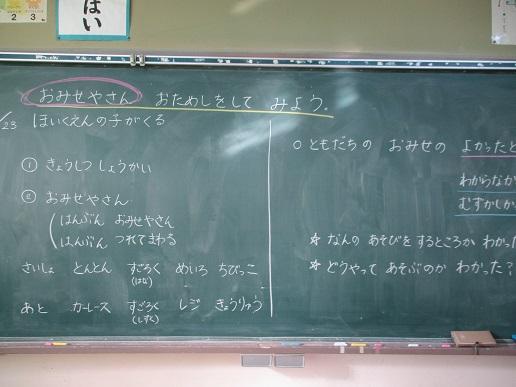 はい
2 3
おみせやさん おためしをして みよう。
/23 ほいくえんの子がくる
① きょうしつ しょうかい
② おみせやさん
はんぶん おみせやさん
はんぶん つれてまわる
さいしょ とんとん すごろく めいろ ちびっこ
(はな)
あと カーレース すごろく レジ きょうりゅう
(しずく)
○ ともだちの おみせの よかったと
わからなか
むずかしか
☆ なんの あそびを するところか わかっ
☆ どうやって あそぶのか わかった?